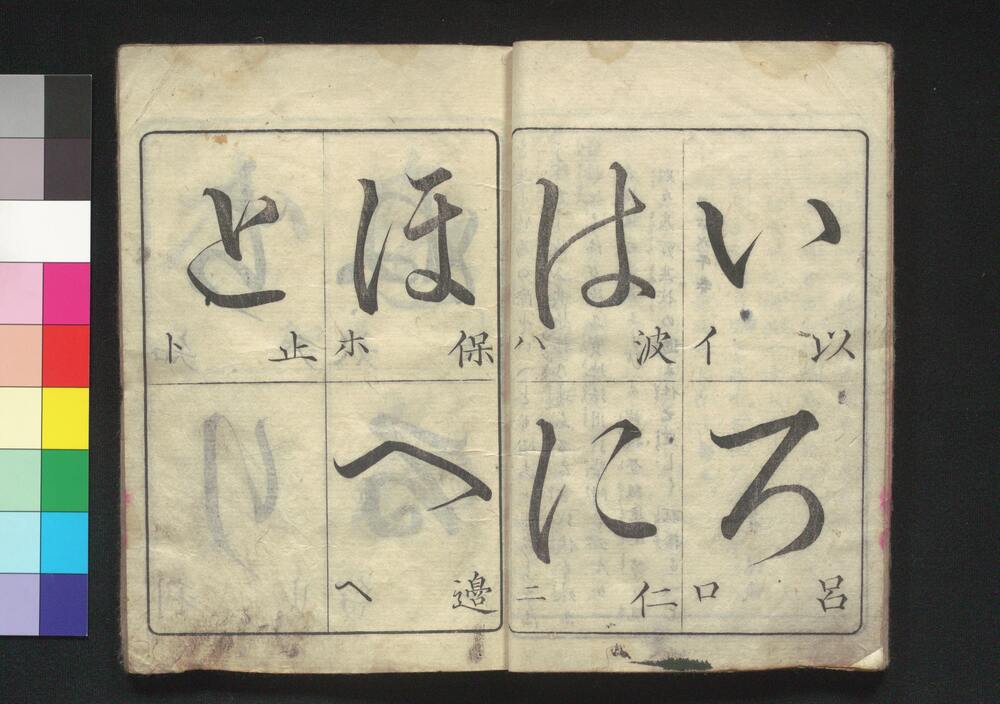 い
以 イ
ろ
呂 ロ
は
波 ハ
に
仁 ニ
ほ
保 ホ
へ
邉 ヘ
と
止 ト